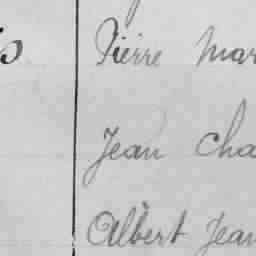 Pierre Mar
Jean Cha
Albert Jean